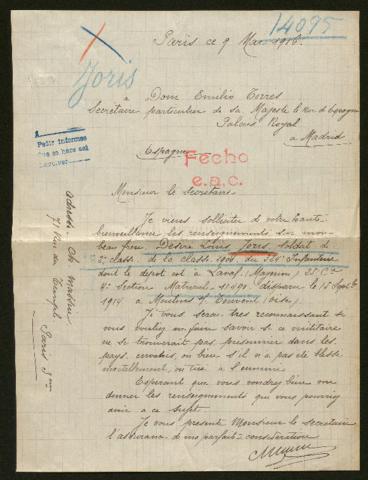 14095
Paris ce 9 Mai 1916.
Joris
à Dom Emilio Torres
Secrétaire particulier de sa Majesté le Roi d'Espagne
Palais Royal
à Madrid
Espagne
A
Pedir informes
Que se hara así
Fecho
e.a.c.
Monsieur le Secrétaire
Je viens solliciter de votre haute
bienveillance les renseignements sur mon
beau frère, Désiré Louis Joris soldat de
2e classe, de la classe 1904, du Infanterie
dont le dépot est à Laval (Mayenne) 28 Cie
4e Section Matricul disparu le 15 Septbre
1914 à Moulins s/ (Oise)
Je vous serai très reconnaissant de
vous vouloir en faire savoir si ce militaire
ne se trouverait pas prisonnier dans les
pays envahis, ou bien s'il n'a pas été blessé
mortellement, ou tué à l'ennemi
Espérant que vous voudrez bien me
donner les renseignements que vous pouvez
avoir à ce sujet.
Je vous présente Monsieur le secrétaire
l'assurance de ma parfaite considération
adresse Ch
71 Rue du Temple Paris 3me